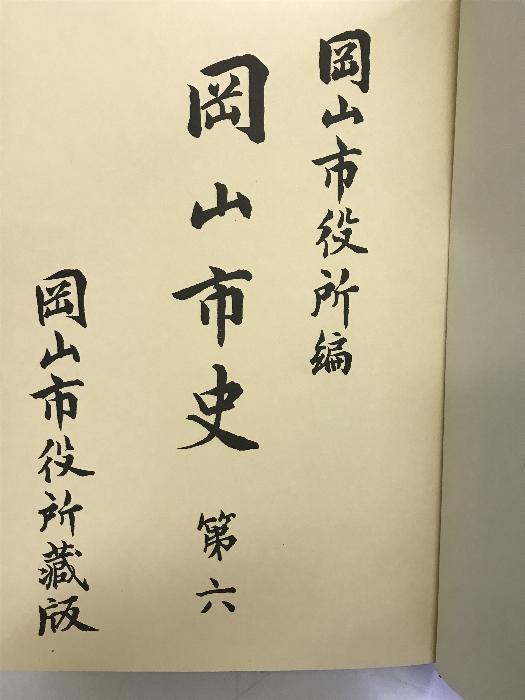 岡山市役所編
岡山市史 第六
岡山市役所藏版